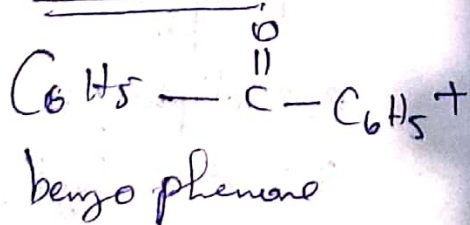 O
||
C6H5 — C — C6H5 +
benzo phenone